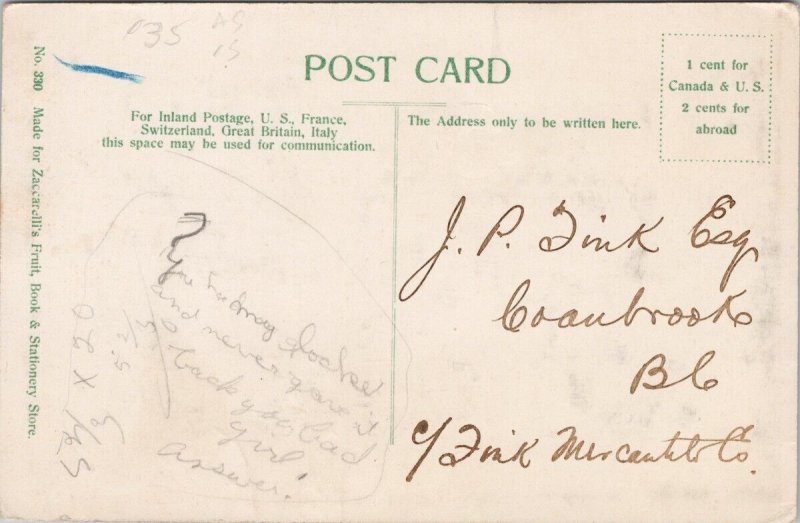 035 AS
15
POST CARD
1 cent for
Canada & U. S.
2 cents for
abroad
No. 330 Made for Zaccarelli's Fruit, Book & Stationery Store.
For Inland Postage, U. S., France,
Switzerland, Great Britain, Italy
this space may be used for communication.
The Address only to be written here.
J. P. Fink Esq
Cranbrook
B C
c/ Fink Mercantile Co.
You
and never gave it
back you bad
girl
answer!